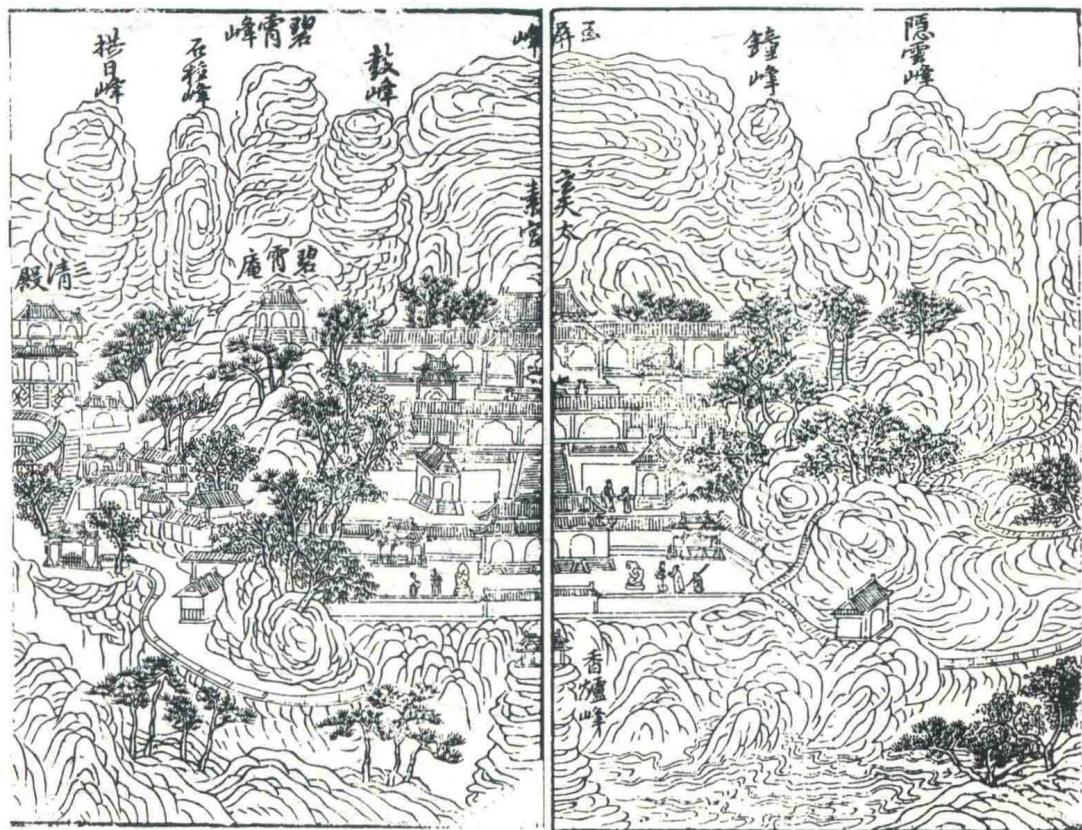 隱雲峰
鐘峰
玉屏峰
鼓峰
碧霄峰
拱日峰
玄天太素宮
碧霄庵
三清殿
香爐峰